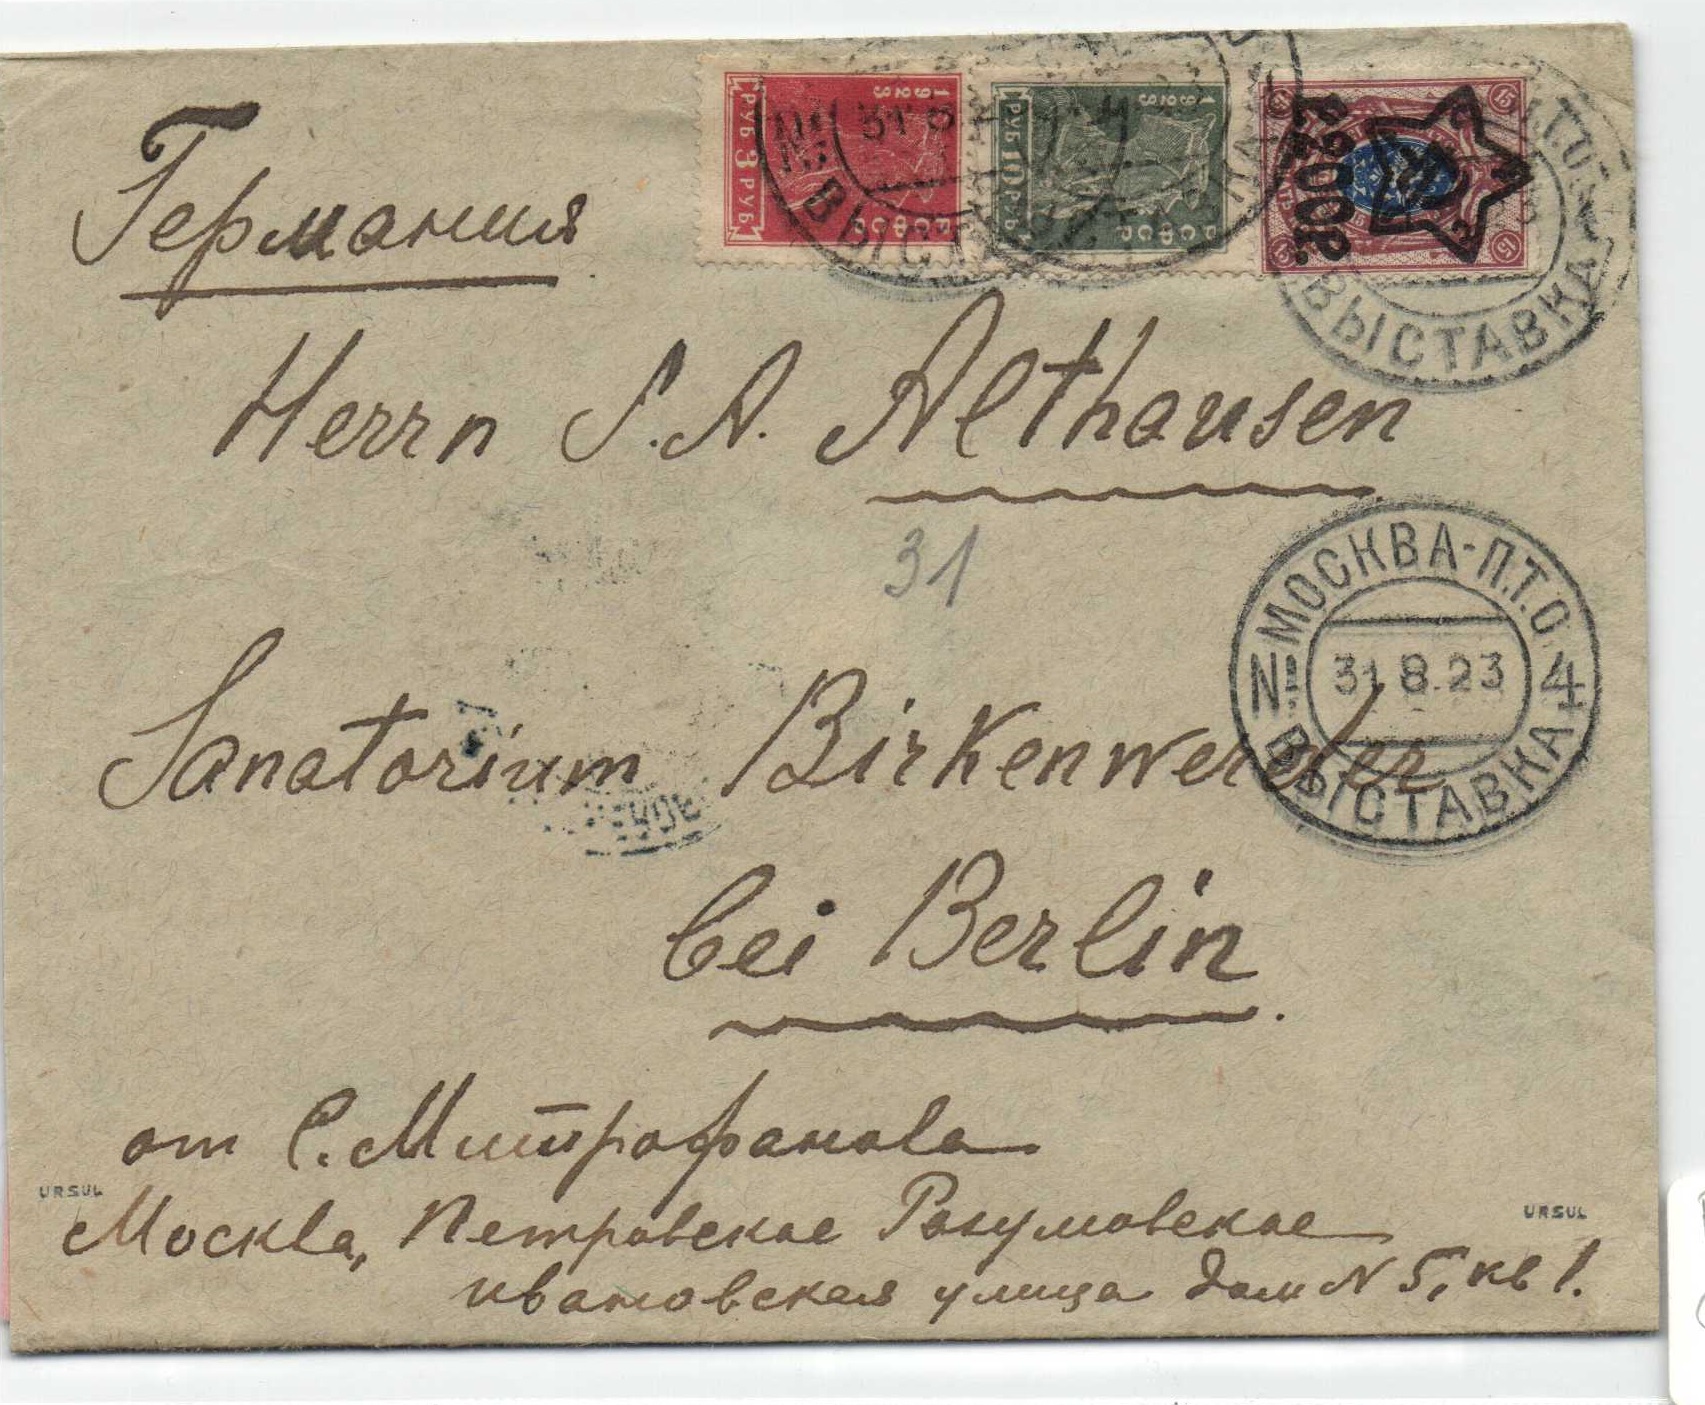 Германия
1923
3 РУБ 3 РУБ
РСФСР
1923
РУБ 10 РУБ
РСФСР
15
15
15
РСФСР
20 р.
ВЫСТАВКА
ВЫСТАВКА
Herrn S. A. Althausen
31
МОСКВА-П.Т.О.
№ 31 8.23 4
ВЫСТАВКА
Sanatorium Birkenwerder
bei Berlin.
от С. Митрофанова
URSUL
Москва, Петровское Разумовское
URSUL
ивановская улица дом N 5, кв 1.